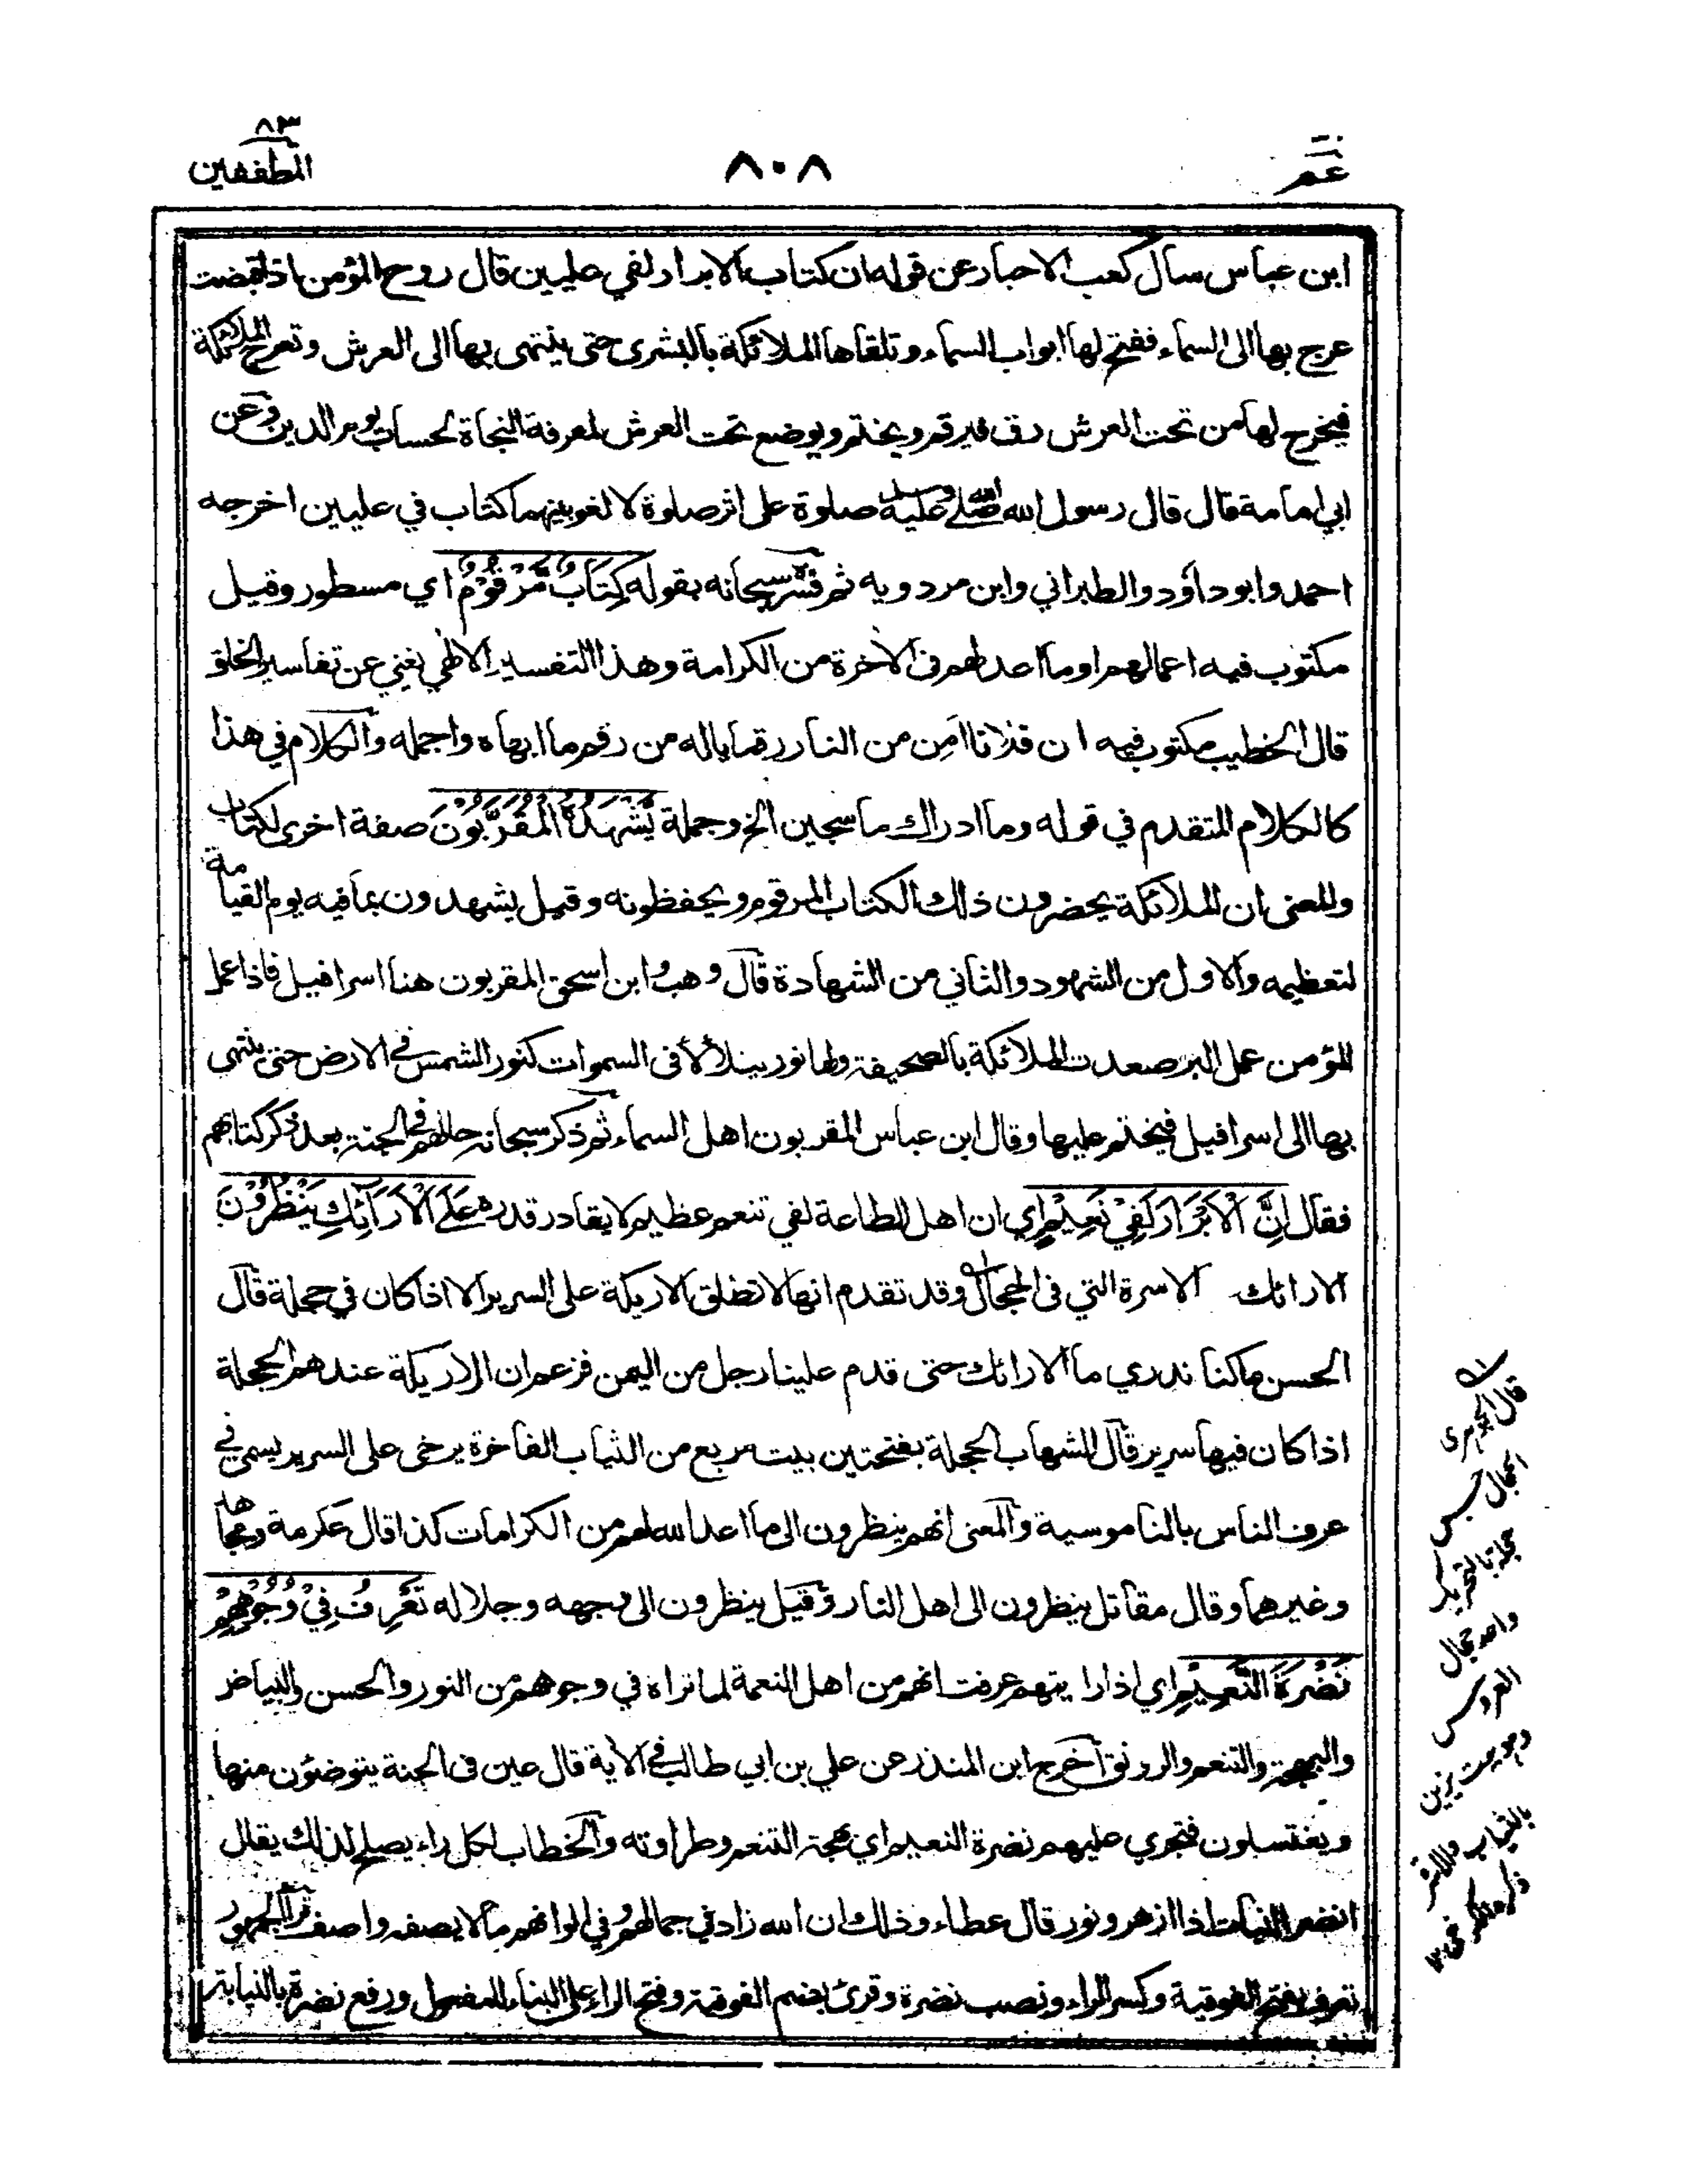 عم
٨٠٨
٨٣
المطففين
ابن عباس سأل كعب الاحبار عن قوله ان كتاب الابرار لفي عليين قال روح المؤمن اذا قبضت
عرج بها الى السماء ففتح لها ابواب السماء وتلقاها الملائكة بالبشرى حتى ينتهى بها الى العرش وتعرج الملائكة
فيخرج لها من تحت العرش رق فيرقم ويختم ويوضع تحت العرش لمعرفة النجاة لحساب يوم الدين وعن
ابي امامة قال قال رسول الله صلى الله عليه وسلم صلوة على اثر صلوة لا لغو بينهما كتاب في عليين اخرجه
احمد وابو داؤد والطبراني وابن مردويه ثم فسره سبحانه بقوله كِتَابٌ مَّرْقُوْمٌ اي مسطور وقيل
مكتوب فيه اعمالهم او ما اعد لهم فى الآخرة من الكرامة وهذا التفسير الالٰهي يغني عن تفاسير الخلق
قال الخطيب مكتوب فيه ان فلانا اَمِن من النار رقما ياله من رقم ما ابهاه واجمله والكلام في هذا
كالكلام المتقدم في قوله وما ادراك ما سجين الخ وجملة يَّشْهَدُهُ الْمُقَرَّبُوْنَ صفة اخرى لكتاب
والمعنى ان الملائكة يحضرون ذلك الكتاب المرقوم ويحفظونه وقيل يشهدون بما فيه يوم القيامة
لتعظيمه والاول من الشهود والثاني من الشهادة قال وهب وابن اسحق المقربون هنا اسرافيل فاذا عمل
المؤمن عمل البر صعدت الملائكة بالصحيفة ولها نور يتلألأ فى السموات كنور الشمس في الارض حتى ينتهى
بها الى اسرافيل فيختم عليها وقال ابن عباس المقربون اهل السماء ثم ذكر سبحانه حالهم في الجنة بعد ذكر كتابهم
فقال اِنَّ الْاَبْرَارَ لَفِيْ نَعِيْمٍ اي ان اهل الطاعة لفي تنعم عظيم لا يقادر قدره عَلَى الْاَرَآئِكِ يَنْظُرُوْنَ
الارائك الاسرة التي فى الحجال وقد تقدم انها لا تطلق الاريكة على السرير الا اذا كان في حجلة قال
الحسن ما كنا ندري ما الارائك حتى قدم علينا رجل من اليمن فزعم ان الاريكة عندهم الحجلة
اذا كان فيها سرير قال الشهاب الحجلة بفتحتين بيت مربع من الثياب الفاخرة يرخى على السرير يسمى في
عرف الناس بالناموسية والمعنى انهم ينظرون الى ما اعد الله لهم من الكرامات كذا قال عكرمة ومجاهد
وغيرهما وقال مقاتل ينظرون الى اهل النار وقيل ينظرون الى وجهه وجلاله تَعْرِفُ فِيْ وُجُوْهِهِمْ
نَضْرَةَ النَّعِيْمِ اي اذا رايتهم عرفت انهم من اهل النعمة لما تراه في وجوههم من النور والحسن والبياض
والبهجة والتنعم والرونق اخرج ابن المنذر عن علي بن ابي طالب في الآية قال عين فى الجنة يتوضئون منها
ويغتسلون فتجري عليهم نضرة النعيم اي بهجة التنعم وطراوته والخطاب لكل راء يصلح لذلك يقال
انضر النبات اذا ازهر ونور قال عطاء وذلك ان الله زاد في جمالهم وفي الوانهم ما لا يصفه واصف قرأ الجمهور
تعرف بفتح الفوقية وكسر الراء ونصب نضرة وقرئ بضم الفوقية وفتح الراء على البناء للمفعول ورفع نضرة بالنيابة
قال الجوهرى
الحجال جمع
حجلة بالتحريك
واحد حجال
العروس
وهو بيت يزين
بالثياب